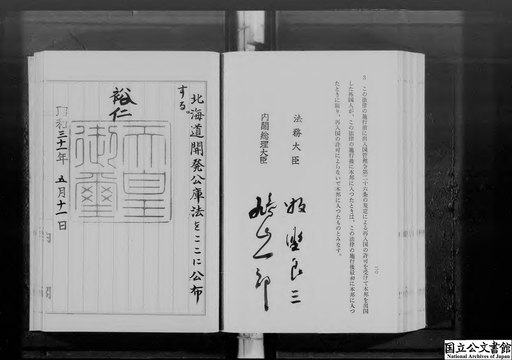 3 この法律の施行前に出入国管理令第二十六条の規定による再入国の許可を受けて本邦を出国
した外国人が、この法律の施行後に本邦に入つたときは、この法律の施行後最初に本邦に入つ
たときに限り、再入国の許可によらないで本邦に入つたものとみなす。
法務大臣 牧野良三
内閣総理大臣 鳩山一郎
北海道開発公庫法をここに公布
する。
裕仁
天皇
御璽
昭和三十一年 五月十一日
国立公文書館
National Archives of Japan